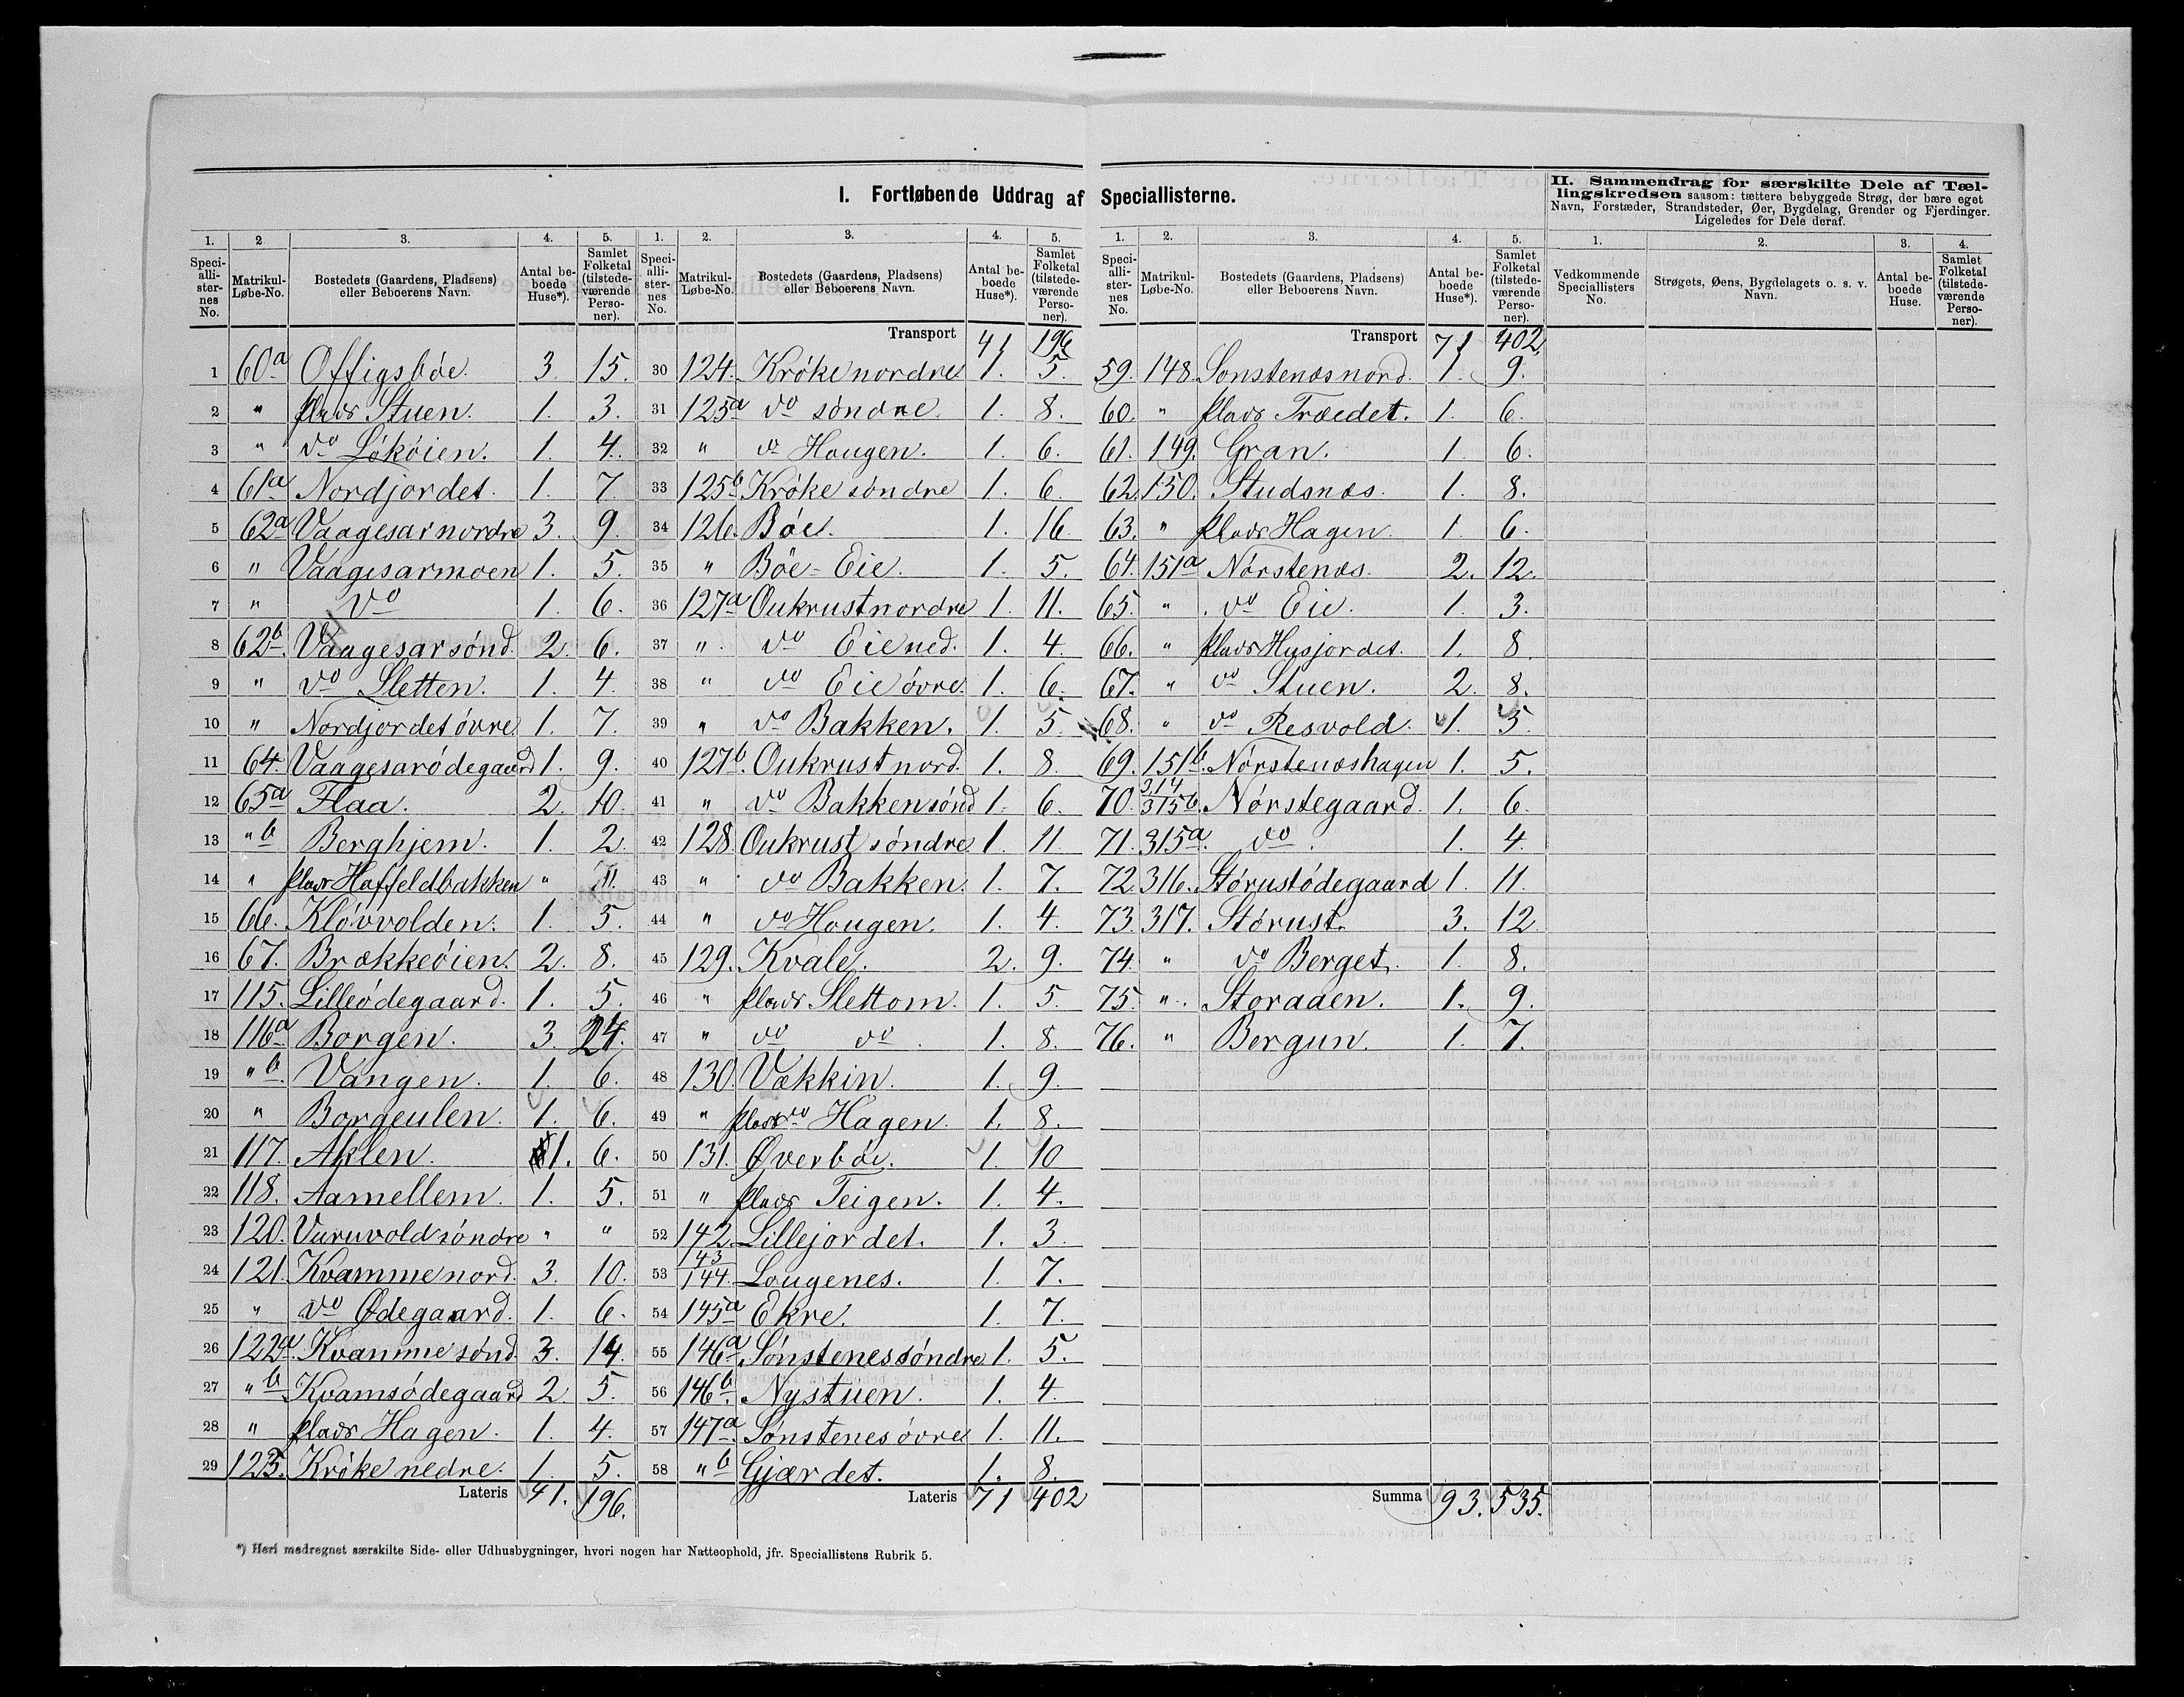 I. Fortløbende Uddrag af Speciallisterne.
II. Sammendrag for særskilte Dele af Tæl-
lingskredsen saasom: tættere bebyggede Strøg, der bære eget
Navn, Forstæder, Strandsteder, Øer, Bygdelag, Grender og Fjerdinger.
Ligeledes for Dele deraf.
1. 2. 3. 4. 5.
Speci-alli-ster-nes No. Matrikul-Løbe-No. Bostedets (Gaardens, Pladsens) eller Beboerens Navn. Antal be-boede Huse*). Samlet Folketal (tilstede-værende Perso-ner).
1 60a Offigsbøe. 3. 15.
2 " plads Stuen. 1. 3.
3 " do Løkøien. 1. 4.
4 61a Nordjordet. 1. 7.
5 62a Vaagesar nordre 3. 9.
6 " Vaagesarmoen 1. 5.
7 " do 1. 6.
8 62b. Vaagesar sønd. 2. 6.
9 " do Sletten. 1. 4.
10 " Nordjordet øvre 1. 7.
11 64. Vaagesarødegaard 1. 9.
12 65a Flaa. 2. 10.
13 "b Berghjem. 1. 2.
14 " plads Haffeldbakken "
15 66. Kløvvolden. 1. 5.
16 67. Brækkeøien. 2. 8.
17 115. Lilleødegaard. 1. 5.
18 116a Borgen. 3. 24.
19 "b. Vangen. 1. 6.
20 " Borgeulen. 1. 6.
21 117. Aklen. 1. 6.
22 118. Aamellem. 1. 5.
23 120. Vuruvold søndre " "
24 121. Kvamme nord. 3. 10.
25 " do Ødegaard. 1. 6.
26 122a. Kvamme sønd. 3. 14.
27 "b Kvamsødegaard 2. 5.
28 " plads Hagen. 1. 4.
29 123. Krøke nedre. 1. 5.
Lateris 41. 196.
1. 2. 3. 4. 5.
Speci-alli-ster-nes No. Matrikul-Løbe-No. Bostedets (Gaardens, Pladsens) eller Beboerens Navn. Antal be-boede Huse*). Samlet Folketal (tilstede-værende Perso-ner).
Transport 41 196
30 124. Krøke nordre 1. 5.
31 125a do søndre. 1. 8.
32 " do Hougen. 1. 6.
33 125b Krøke søndre 1. 6.
34 126. Bøe. 1. 16.
35 " Bøe-Eie. 1. 5.
36 127a Oukrust nordre 1. 11.
37 " do Eie ned. 1. 4.
38 " do Eie øvre. 1. 6.
39 " do Bakken. 1. 5.
40 127b. Oukrust nord. 1. 8.
41 " do Bakken sønd 1. 6.
42 128. Oukrust søndre 1. 11.
43 " do Bakken. 1. 7.
44 " do Hougen. 1. 4.
45 129. Kvale. 2. 9.
46 " plads Slettom. 1. 5.
47 " do do. 1. 8.
48 130. Vækkin. 1. 9.
49 " plads do Hagen. 1. 8.
50 131. Øverbøe. 1. 10
51 " plads Teigen. 1. 4.
52 142. Lillejordet. 1. 3.
53 143/144. Lougenes. 1. 7.
54 145a Ekre. 1. 7.
55 146a Sønstenes søndre 1. 5.
56 146b. Nystuen. 1. 4.
57 147a Sønstenes øvre 1. 11.
58 "b Gjærdet. 1. 8.
Lateris 71 402
1. 2. 3. 4. 5.
Speci-alli-ster-nes No. Matrikul-Løbe-No. Bostedets (Gaardens, Pladsens) eller Beboerens Navn. Antal be-boede Huse*). Samlet Folketal (tilstede-værende Perso-ner).
Transport 71 402.
59. 148. Sønstenæs nord. 1. 9.
60. " plads Træedet. 1. 6.
61. 149. Gran. 1. 6.
62. 150. Studsnæs. 1. 8.
63. " plads Hagen. 1. 6.
64. 151a Nørstenæs. 2. 12.
65. " do Eie. 1. 3.
66. " plads Husjordet. 1. 8.
67. " do Stuen. 2. 8.
68. " do Resvold. 1. 5.
69. 151b. Nørstenæshagen 1. 5.
70. 314/315b. Nørstegaard. 1. 6.
71. 315a. do. 1. 4.
72. 316. Størustødegaard 1. 11.
73. 317. Størust. 3. 12.
74. " do Berget. 1. 8.
75. " Storaaen. 1. 9.
76. " Bergun. 1. 7.
Summa 93. 535.
1. 2. 3. 4.
Vedkommende Speciallisters No. Strøgets, Øens, Bygdelagets o. s. v. Navn. Antal be-boede Huse. Samlet Folketal (tilstede-værende Perso-ner).
*) Heri medregnet særskilte Side- eller Udhusbygninger, hvori nogen har Natteophold, jfr. Speciallistens Rubrik 5.